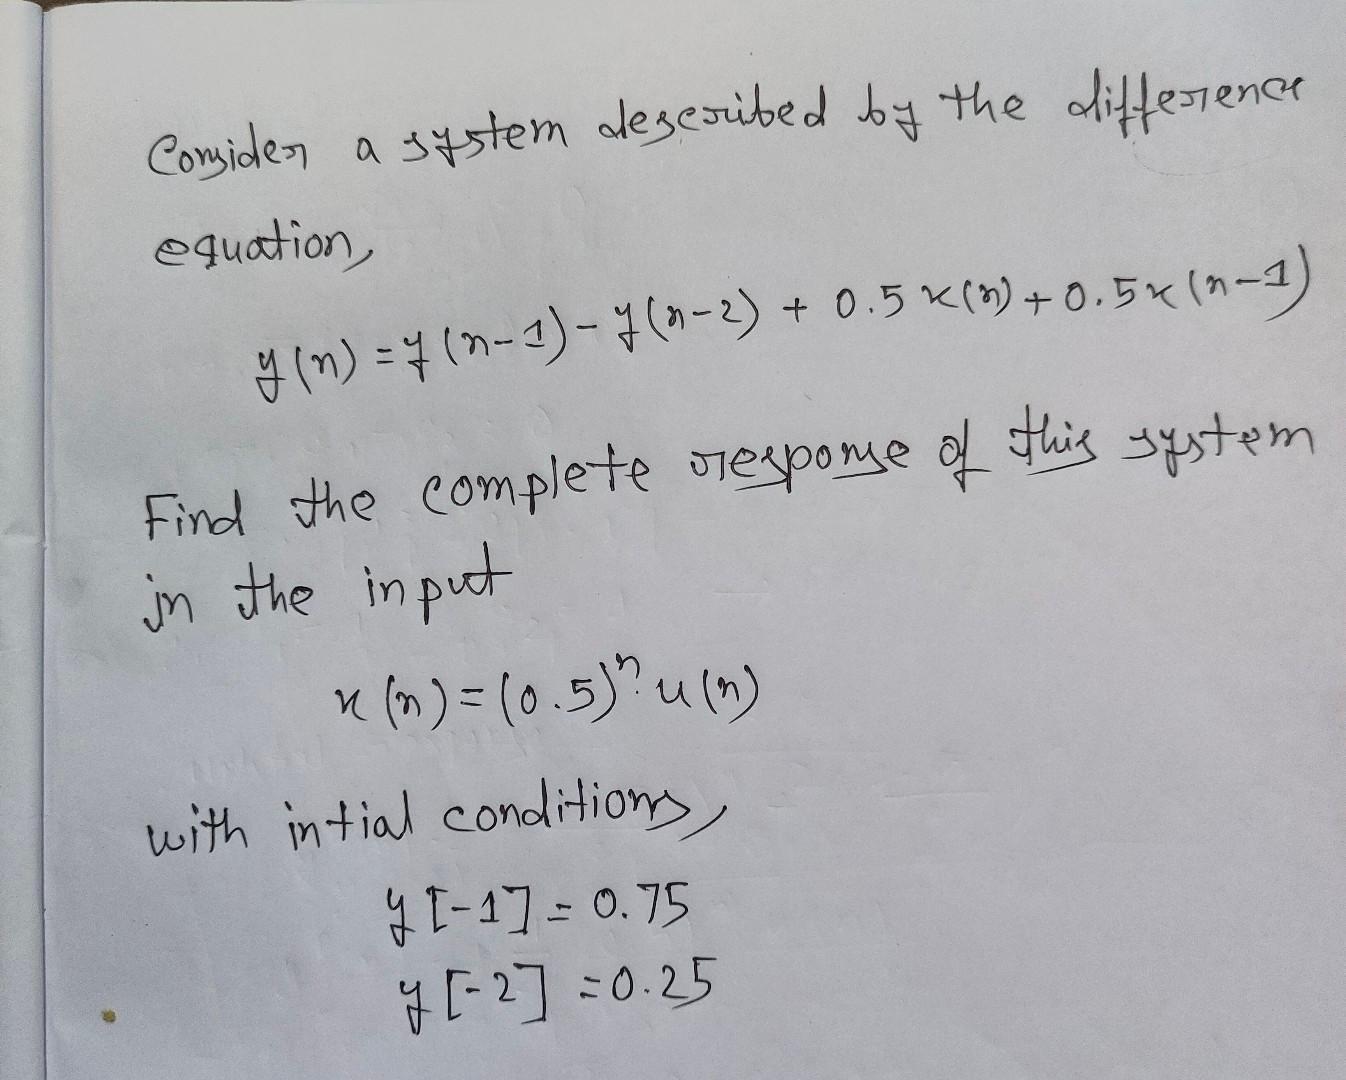 Consider a system described by the difference
equation,
y(n) = y(n-1) - y(n-2) + 0.5 x(n) + 0.5x(n-1)
Find the complete response of this system
in the input
x(n) = (0.5)ⁿ.u(n)
with intial conditions,
y[-1] = 0.75
y[-2] = 0.25